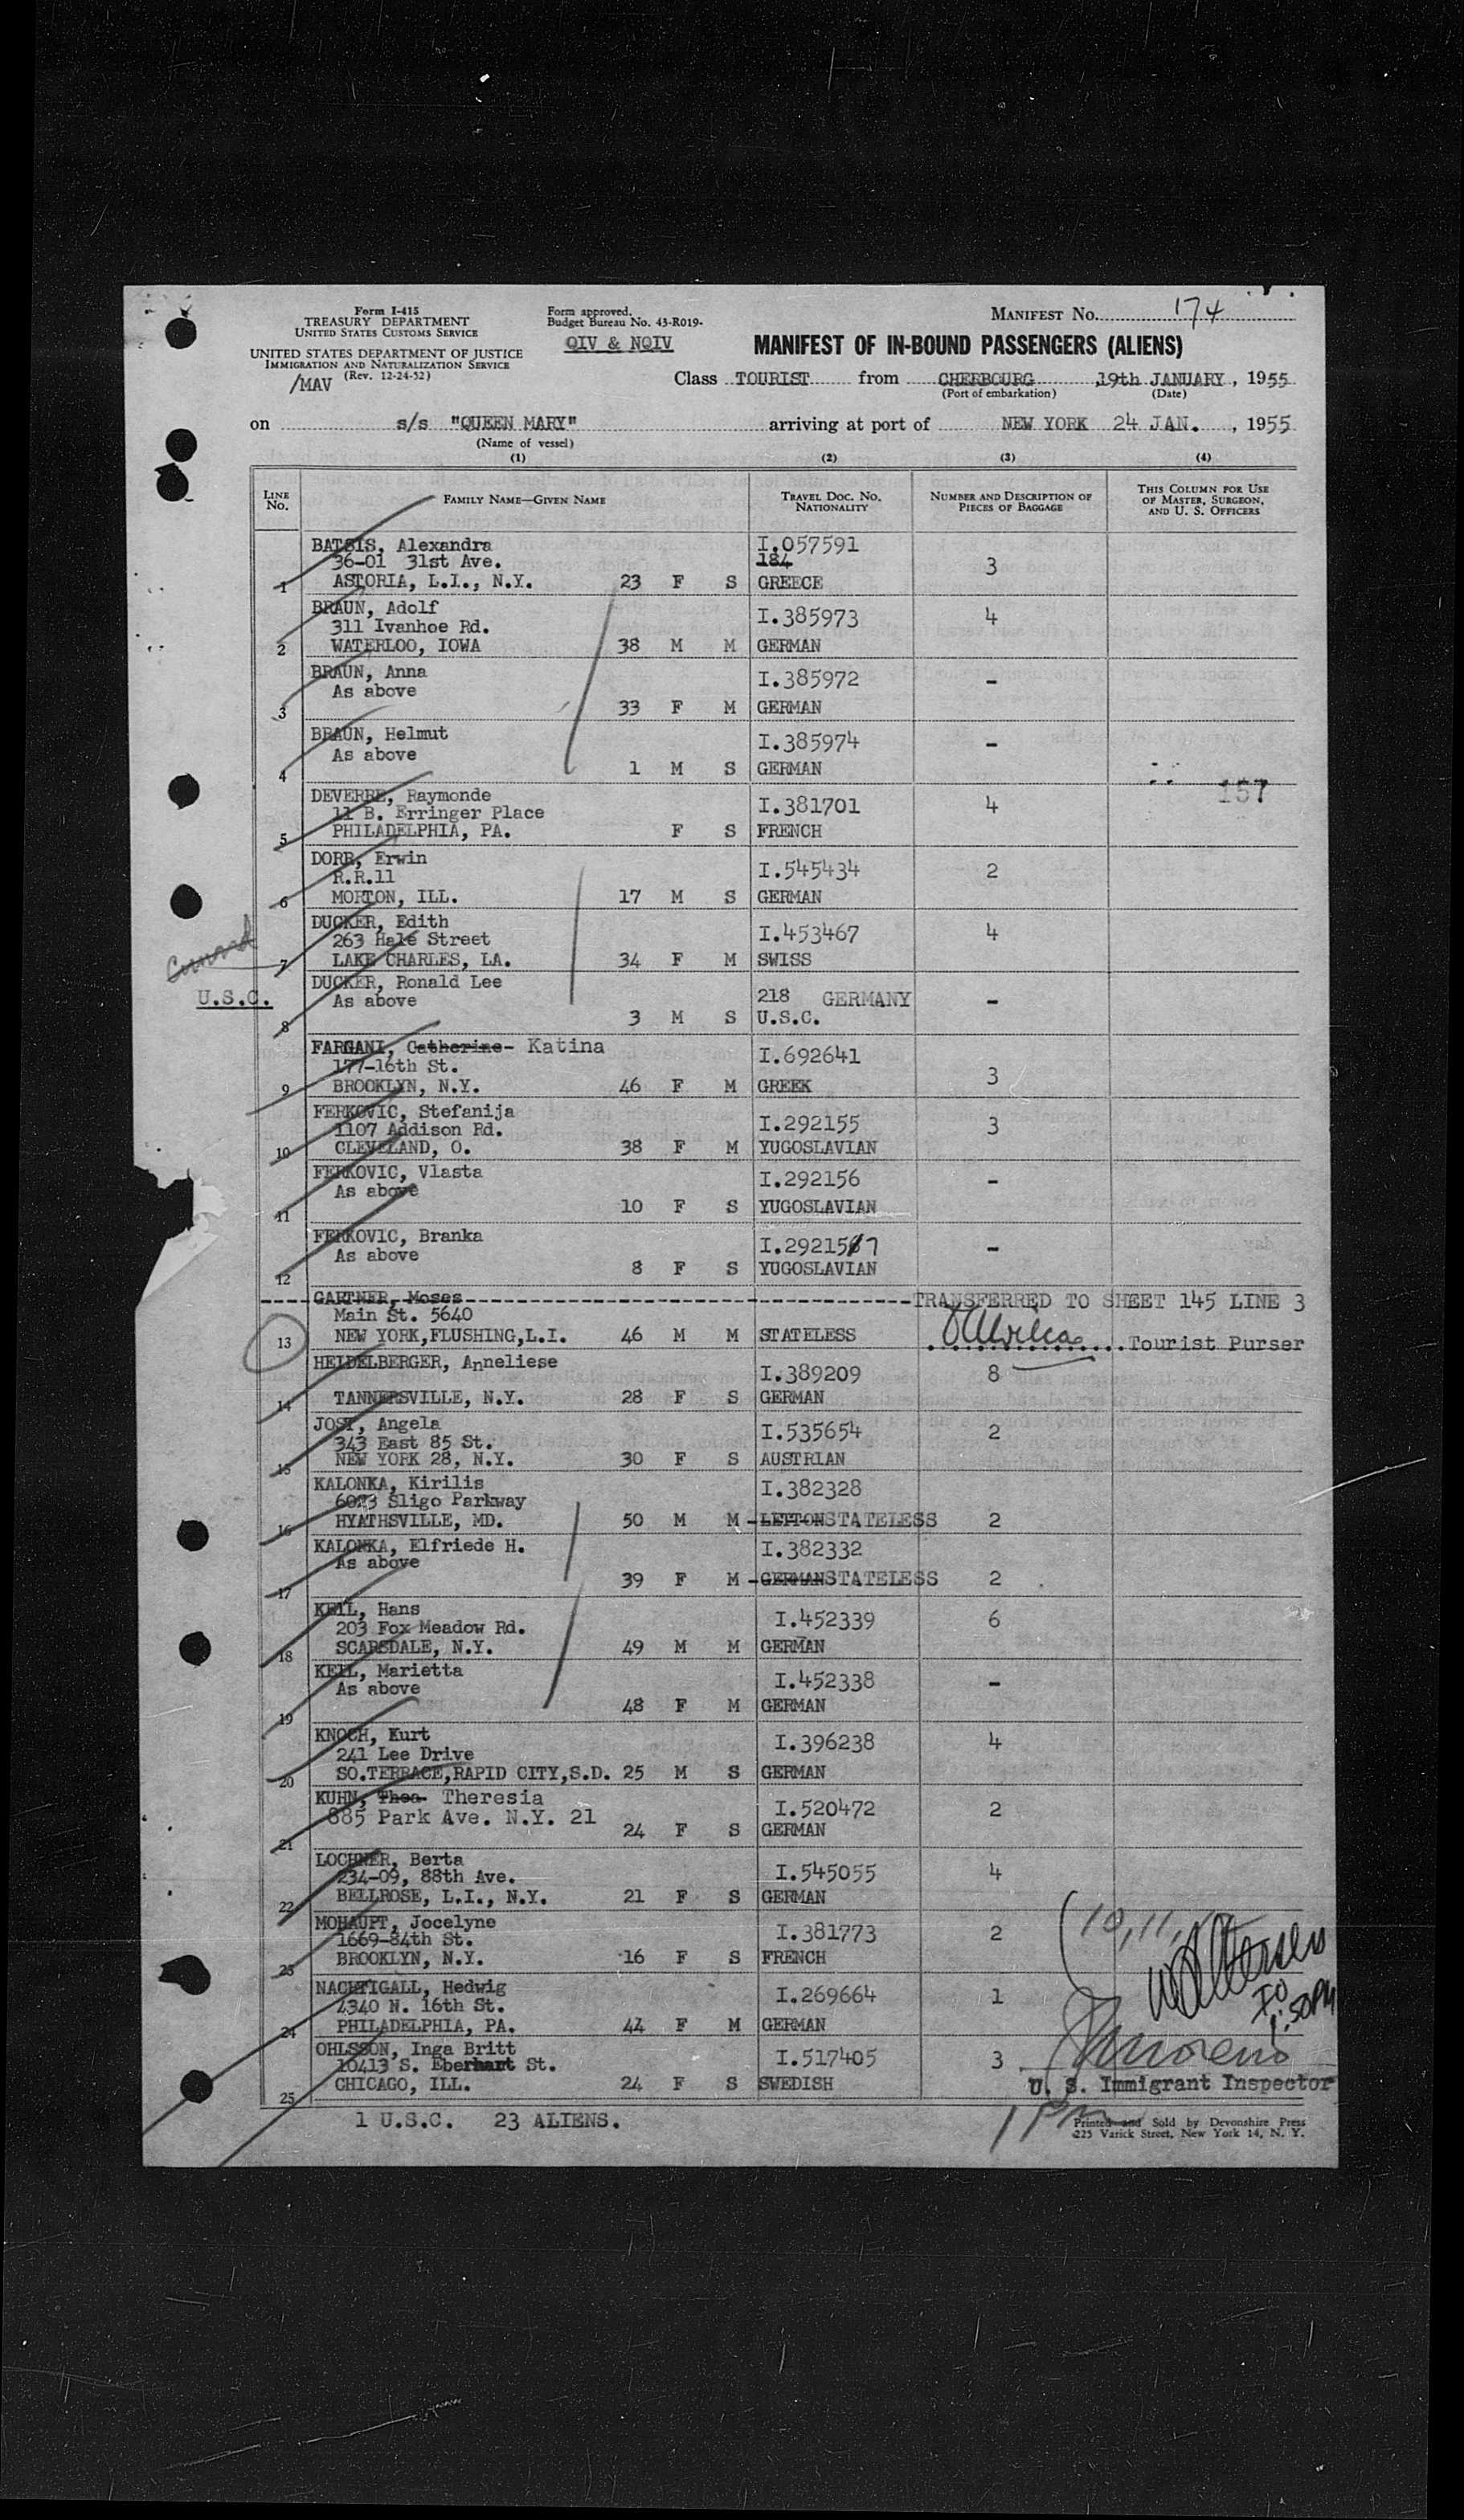 Form I-415
TREASURY DEPARTMENT
UNITED STATES CUSTOMS SERVICE
UNITED STATES DEPARTMENT OF JUSTICE
IMMIGRATION AND NATURALIZATION SERVICE
(Rev. 12-24-52)
/MAV
Form approved.
Budget Bureau No. 43-R019-
QIV & NQIV
MANIFEST NO. 174
MANIFEST OF IN-BOUND PASSENGERS (ALIENS)
Class TOURIST from CHERBOURG, 19th JANUARY, 1955
(Port of embarkation) (Date)
on s/s "QUEEN MARY" arriving at port of NEW YORK 24 JAN., 1955
(Name of vessel)
(1) (2) (3) (4)
LINE NO. FAMILY NAME—GIVEN NAME TRAVEL DOC. NO. NATIONALITY NUMBER AND DESCRIPTION OF PIECES OF BAGGAGE THIS COLUMN FOR USE OF MASTER, SURGEON, AND U. S. OFFICERS
BATSIS, Alexandra I.057591
36-01 31st Ave. 184 3
1 ASTORIA, L.I., N.Y. 23 F S GREECE
BRAUN, Adolf I.385973 4
311 Ivanhoe Rd.
2 WATERLOO, IOWA 38 M M GERMAN
BRAUN, Anna I.385972 -
As above
3 33 F M GERMAN
BRAUN, Helmut I.385974 -
As above
4 1 M S GERMAN
157
DEVERRE, Raymonde I.381701 4
11 B. Erringer Place
5 PHILADELPHIA, PA. F S FRENCH
DORR, Erwin I.545434 2
R.R.11
6 MORTON, ILL. 17 M S GERMAN
DUCKER, Edith I.453467 4
263 Hale Street
7 LAKE CHARLES, LA. 34 F M SWISS
DUCKER, Ronald Lee 218 GERMANY -
U.S.C. As above
8 3 M S U.S.C.
FARGANI, Catherine- Katina I.692641
177-16th St. 3
9 BROOKLYN, N.Y. 46 F M GREEK
FERKOVIC, Stefanija I.292155 3
1107 Addison Rd.
10 CLEVELAND, O. 38 F M YUGOSLAVIAN
FERKOVIC, Vlasta I.292156 -
As above
11 10 F S YUGOSLAVIAN
FERKOVIC, Branka I.292157 -
As above
12 8 F S YUGOSLAVIAN
GARTNER, Moses TRANSFERRED TO SHEET 145 LINE 3
Main St. 5640
13 NEW YORK,FLUSHING,L.I. 46 M M STATELESS Tourist Purser
HEIDELBERGER, Anneliese I.389209 8
14 TANNERSVILLE, N.Y. 28 F S GERMAN
JOST, Angela I.535654 2
343 East 85 St.
15 NEW YORK 28, N.Y. 30 F S AUSTRIAN
KALONKA, Kirilis I.382328
6023 Sligo Parkway
16 HYATHSVILLE, MD. 50 M M -LETTON STATELESS 2
KALONKA, Elfriede H. I.382332
As above
17 39 F M -GERMAN STATELESS 2
KEIL, Hans I.452339 6
203 Fox Meadow Rd.
18 SCARSDALE, N.Y. 49 M M GERMAN
KEIL, Marietta I.452338 -
As above
19 48 F M GERMAN
KNOCH, Kurt I.396238 4
241 Lee Drive
20 SO.TERRACE,RAPID CITY,S.D. 25 M S GERMAN
KUHN, Thea- Theresia I.520472 2
885 Park Ave. N.Y. 21
21 24 F S GERMAN
LOCHNER, Berta I.545055 4
234-09, 88th Ave.
22 BELLROSE, L.I., N.Y. 21 F S GERMAN
MOHAUPT, Jocelyne I.381773 2 10, 11,
1669-84th St.
23 BROOKLYN, N.Y. 16 F S FRENCH
NACHTIGALL, Hedwig I.269664 1
4340 N. 16th St.
24 PHILADELPHIA, PA. 44 F M GERMAN
OHLSSON, Inga Britt I.517405 3
10413 S. Eberhart St.
25 CHICAGO, ILL. 24 F S SWEDISH U. S. Immigrant Inspector
1 U.S.C. 23 ALIENS. 1 PM
Printed and Sold by Devonshire Press
225 Varick Street, New York 14, N. Y.